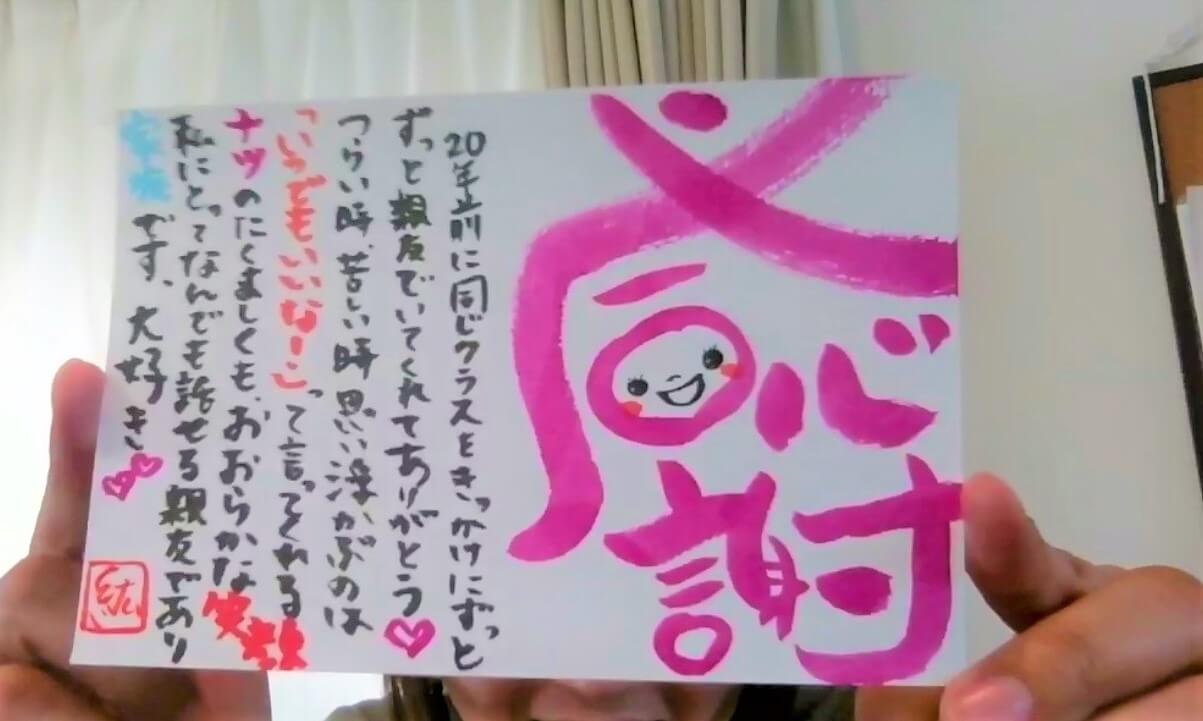 感謝
20年前に同じクラスをきっかけにずっと
ずっと親友でいてくれてありがとう
つらい時、苦しい時思い浮かぶのは
って言ってくれる
ナツのたくましくも、おおらかな笑顔
私にとってなんでも話せる親友であり
家族です、大好き